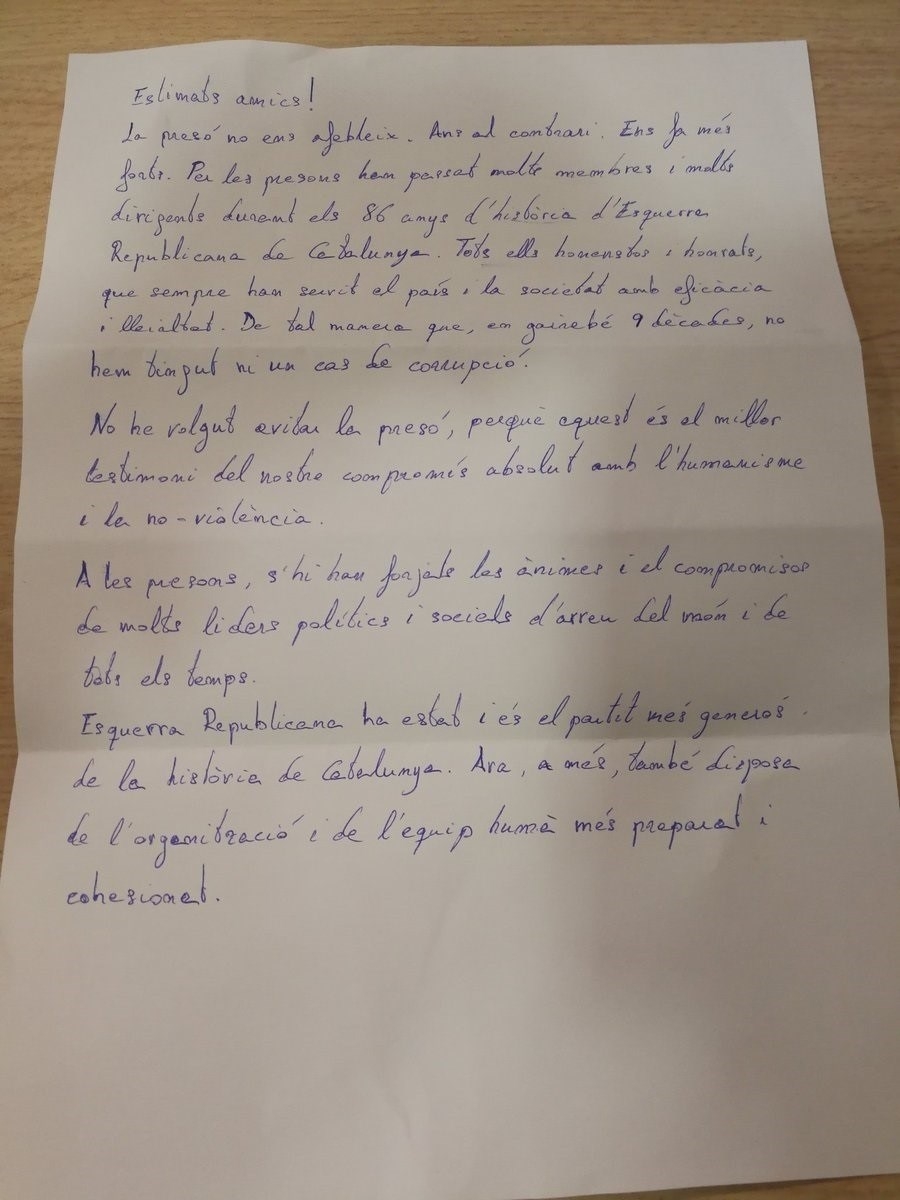 Estimats amics!
La presó no ens afebleix. Ans al contrari. Ens fa més
forts. Per les presons han passat molts membres i molts
dirigents durant els 86 anys d'història d'Esquerra
Republicana de Catalunya. Tots ells honenstos i honrats,
que sempre han servit el país i la societat amb eficàcia
i lleialtat. De tal manera que, en gairebé 9 dècades, no
hem tingut ni un cas de corrupció.
No he volgut evitar la presó, perquè aquest és el millor
testimoni del nostre compromés absolut amb l'humanisme
i la no-violència.
A les presons, s'hi han forjats les ànimes i el compromisos
de molts liders polítics i socials d'arreu del món i de
tots els temps.
Esquerra Republicana ha estat i és el partit més generós
de la història de Catalunya. Ara, a més, també disposa
de l'organització i de l'equip humà més preparat i
cohesionat.